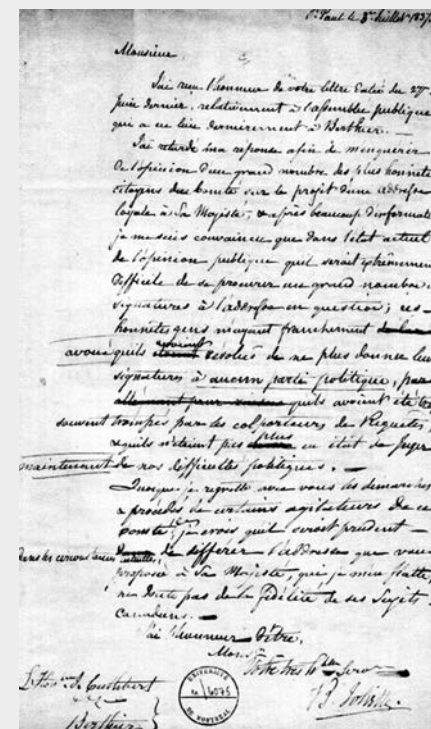 St Paul le 3e Juillet 1837
Monsieur
J'ai reçu l'honneur de votre lettre datée du 27
Juin dernier, relativement à l'assemblée publique
qui a eu lieu dernierement à Berthier. —
J'ai retardé ma reponse afin de m'enquerir
de l'opinion d'un grand nombre des plus honnêtes
citoyens du comté sur le projet d'une addresse
loyale à Sa Majesté, & après beaucoup d'informat
je me suis convaincu que dans l'état actuel
de l'opinion publique qu'il serait extrêmement
difficile de se procurer un grand nombre
signatures à l'addresse en question; ces
honnêtes gens m'ayant franchement
avoué qu'ils avoient résolus de ne plus donner leur
signatures à aucun parti politique, par
qu'ils avoient été
souvent trompés par des colporteurs de Requêtes,
& qu'ils n'étoient pas plus en état de juger
maintenant de nos difficultés politiques. —
Quoique je regrette avec vous les demarches
& procédés de certains agitateurs de ce
comté, je crois qu'il seroit prudent —
dans les circonstances actuelles, de differer l'addresse que vous
proposé à Sa Majesté, qui je m'en flatte,
ne doute pas de la fidélité de ses Sujets
Canadiens. —
J'ai l'honneur d'être,
Monsr
Votre tres hble Serv
L'Honr J. Cuthbert
B. Joliette
Berthier
UNIVERSITÉ
4075
DE MONTREAL